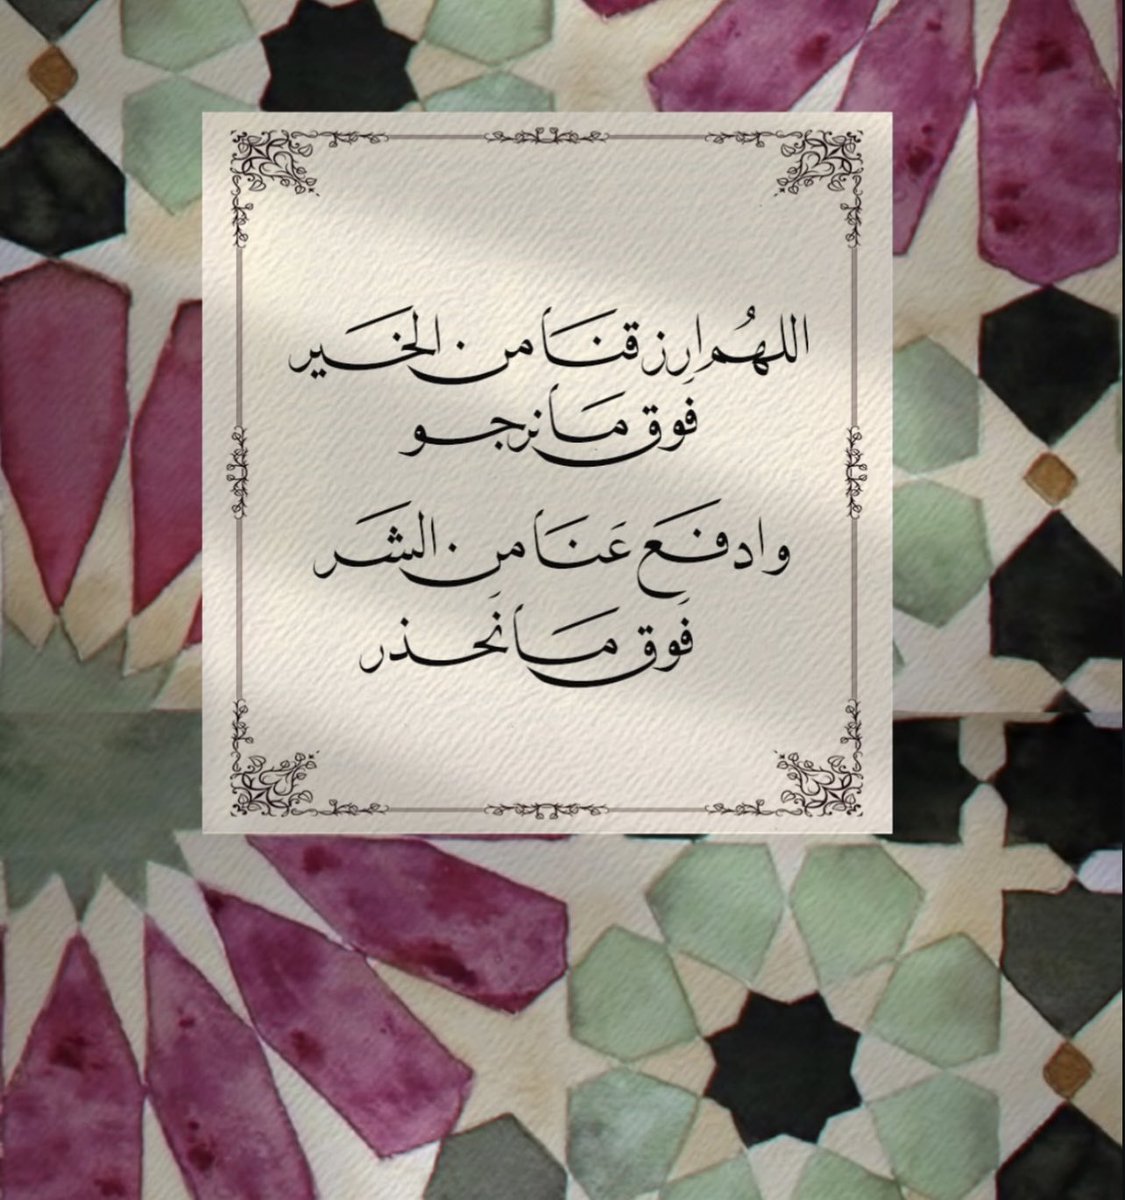 اللهُم ارِزقنَا من الخير
فَوق مَا نرجو
وادفَع عَنَا من الشر
فَوق مَا نَحذر